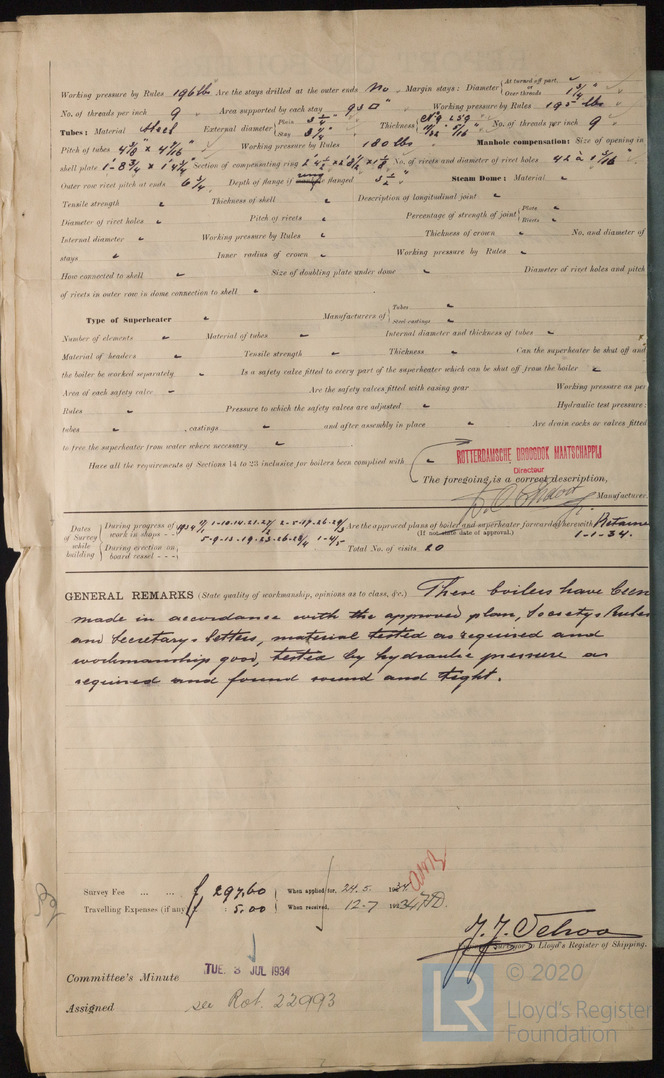 Working pressure by Rules 196 lb" Are the stays drilled at the outer ends No Margin stays: Diameter { At turned off part or Over threads 1 3/4"
No. of threads per inch 9 Area supported by each stay 93 □" Working pressure by Rules 195 lbs
Tubes: Material Steel External diameter { Plain 3 1/4" Stay 3 1/4" Thickness { No. of threads per inch 9
Pitch of tubes Working pressure by Rules 180 lbs Manhole compensation: Size of opening in
shell plate 1-8 3/4 x 1'4 3/4" Section of compensating ring No. of rivets and diameter of rivet holes 42 à 1 3/16"
Outer row rivet pitch at ends 6 3/4 Depth of flange if ring flanged 3 1/2" Steam Dome: Material
Tensile strength Thickness of shell Description of longitudinal joint
Diameter of rivet holes Pitch of rivets Percentage of strength of joint { Plate Rivets
Internal diameter Working pressure by Rules Thickness of crown No. and diameter of
stays Inner radius of crown Working pressure by Rules
How connected to shell Size of doubling plate under dome Diameter of rivet holes and pitch
of rivets in outer row in dome connection to shell
Type of Superheater Manufacturers of { Tubes Steel castings
Number of elements Material of tubes Internal diameter and thickness of tubes
Material of headers Tensile strength Thickness Can the superheater be shut off and
the boiler be worked separately Is a safety valve fitted to every part of the superheater which can be shut off from the boiler
Area of each safety valve Are the safety valves fitted with easing gear Working pressure as per
Rules Pressure to which the safety valves are adjusted Hydraulic test pressure:
tubes , castings and after assembly in place Are drain cocks or valves fitted
to free the superheater from water where necessary
Have all the requirements of Sections 14 to 23 inclusive for boilers been complied with
ROTTERDAMSCHE DROOGDOK MAATSCHAPPIJ
Directeur
The foregoing is a correct description,
Manufacturer.
Dates of Survey while building { During progress of work in shops - - 1934 Are the approved plans of boiler and superheater forwarded herewith
(If not state date of approval.) 1-1-34.
During erection on board vessel - - - Total No. of visits 20
GENERAL REMARKS (State quality of workmanship, opinions as to class, &c.) These boilers have been
made in accordance with the approved plan, Society's Rules
and Secretary's letters, material tested as required and
workmanship good, tested by hydraulic pressure as
required and found sound and tight.
Survey Fee ... ... f 297.60 When applied for, 24.5. 1934
Travelling Expenses (if any) f : 5.00 When received, 12-7 1934
Surveyor to Lloyd's Register of Shipping.
Committee's Minute TUE. 3 JUL 1934
Assigned see Rot. 22993
LR © 2020
Lloyd's Register
Foundation